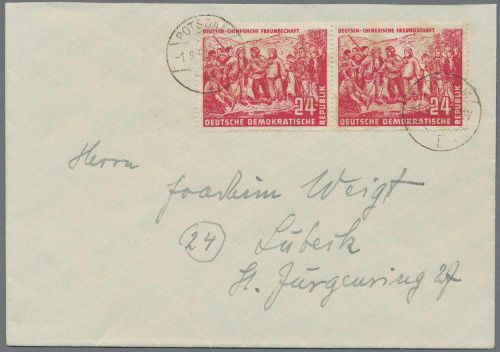 POTSDAM
-1.8.5
DEUTSCH-CHINESISCHE FREUNDSCHAFT
24
DEUTSCHE DEMOKRATISCHE
REPUBLIK
DEUTSCH-CHINESISCHE FREUNDSCHAFT
24
DEUTSCHE DEMOKRATISCHE
REPUBLIK
Herrn
Joachim Weigt
(24) Lübeck
St. Jürgenring 27